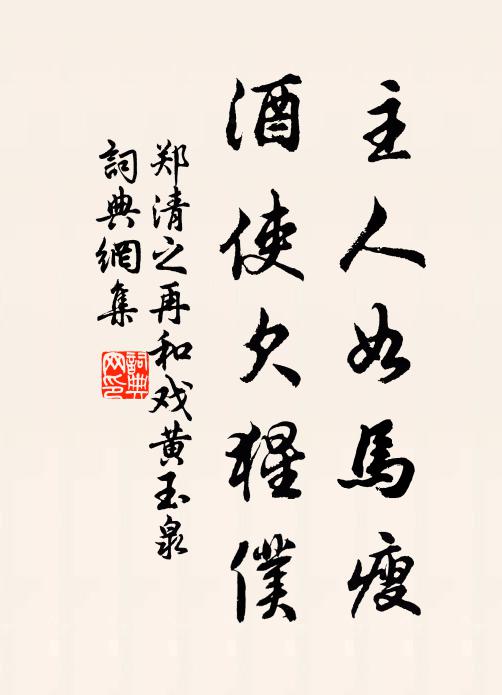 主人如馬瘦
酒使欠猩僕
郑清之再和戏黄玉泉
詞典網集
詞典網印